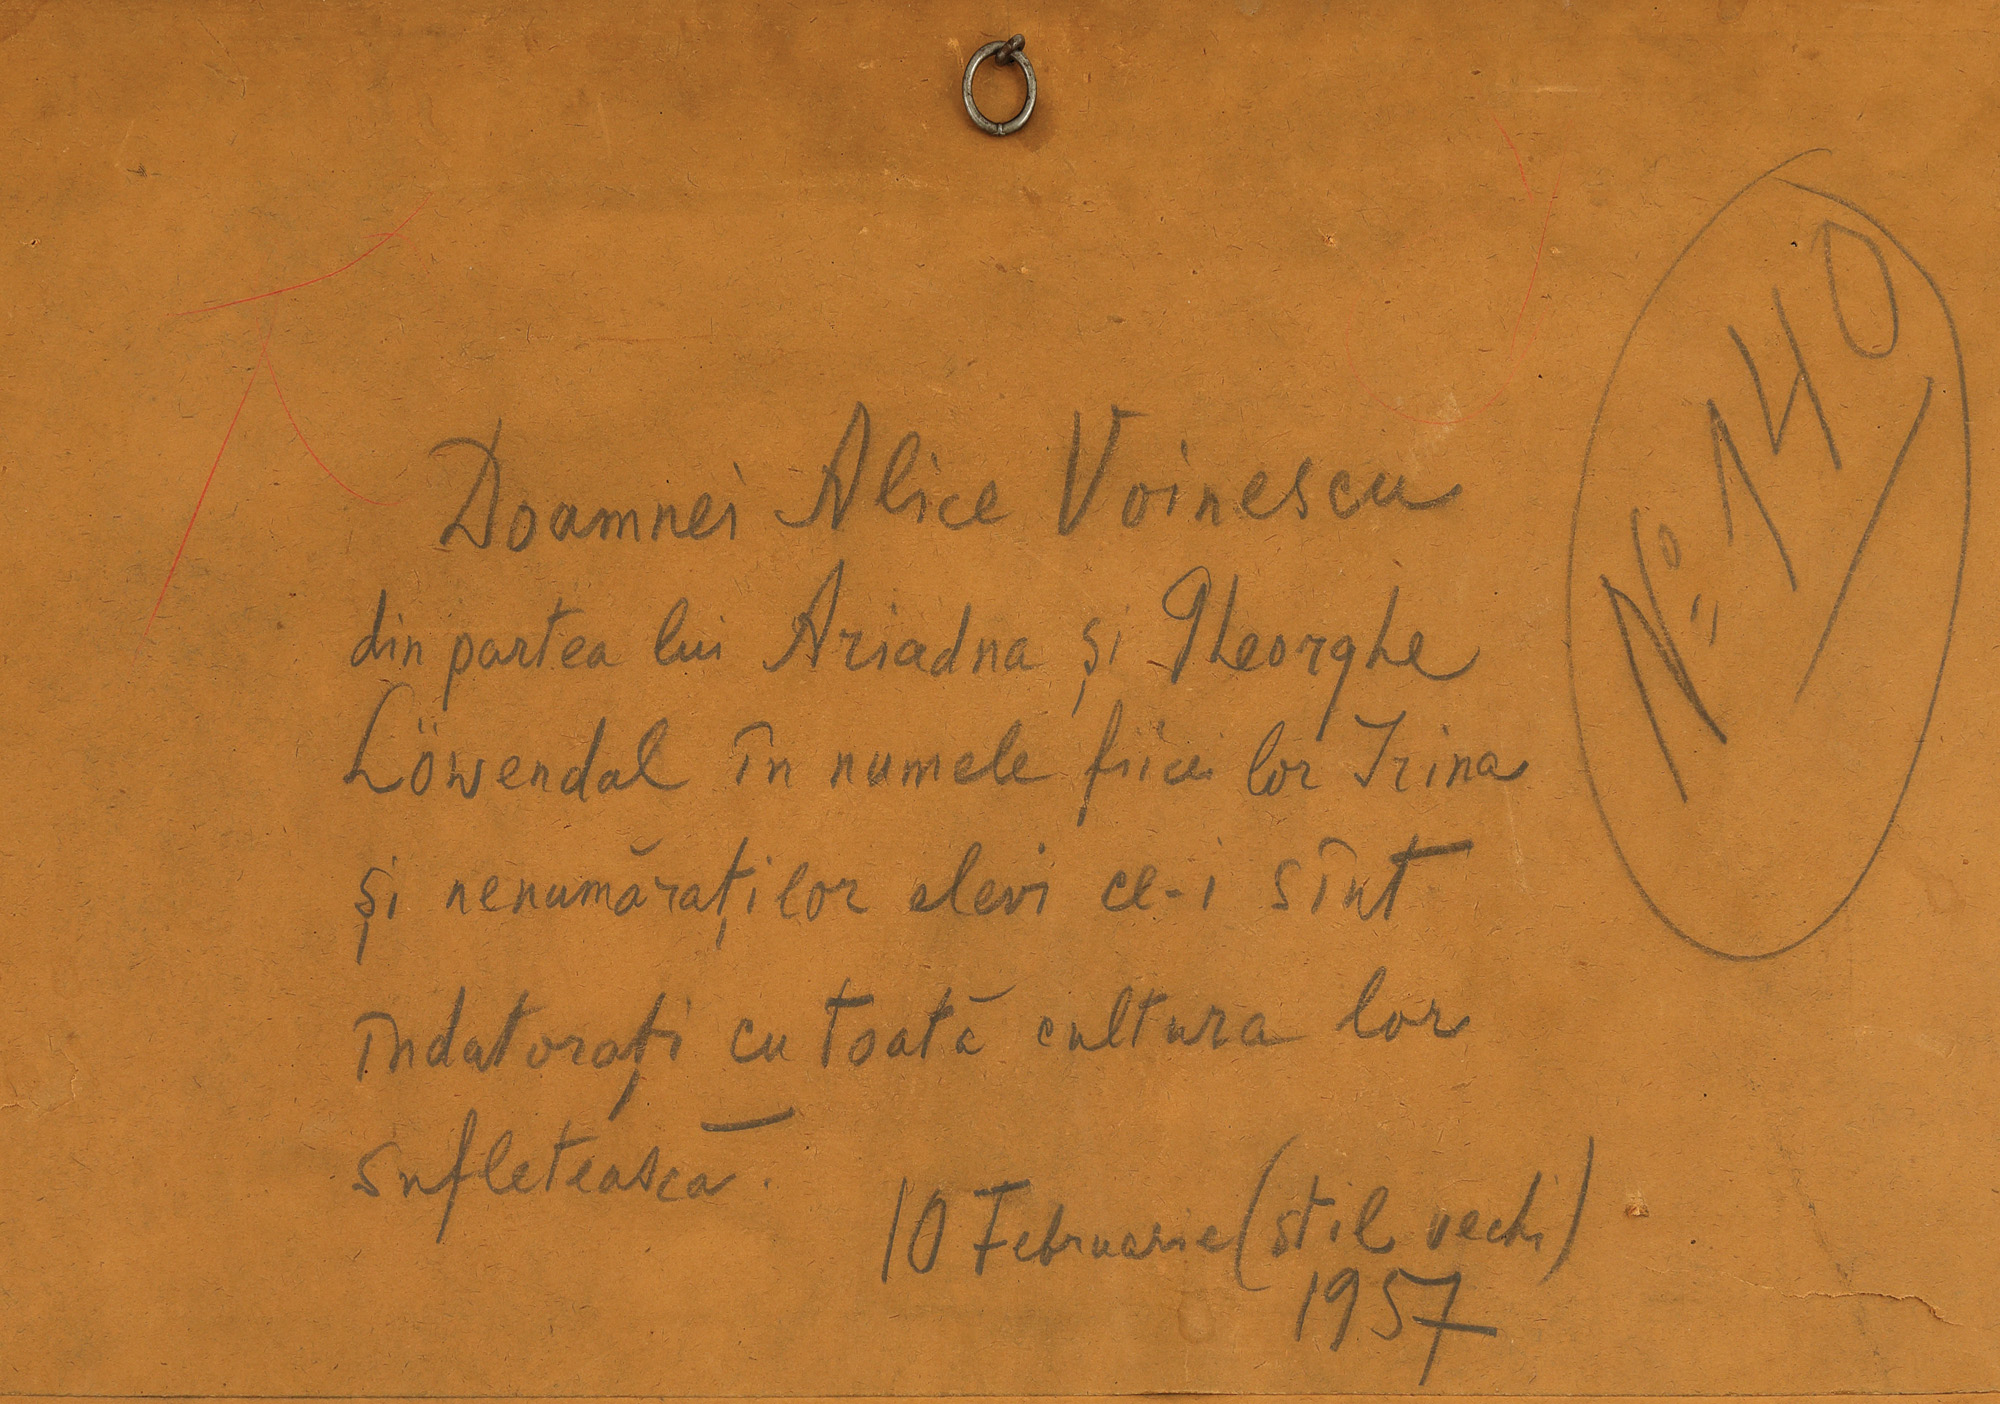 Doamnei Alice Voinescu
din partea lui Ariadna și Gheorghe
Löwendal în numele fiicei lor Irina
și nenumăraților elevi ce-i sînt
îndatorați cu toată cultura lor
sufletească.
10 Februarie (stil vechi)
1957
No. 140